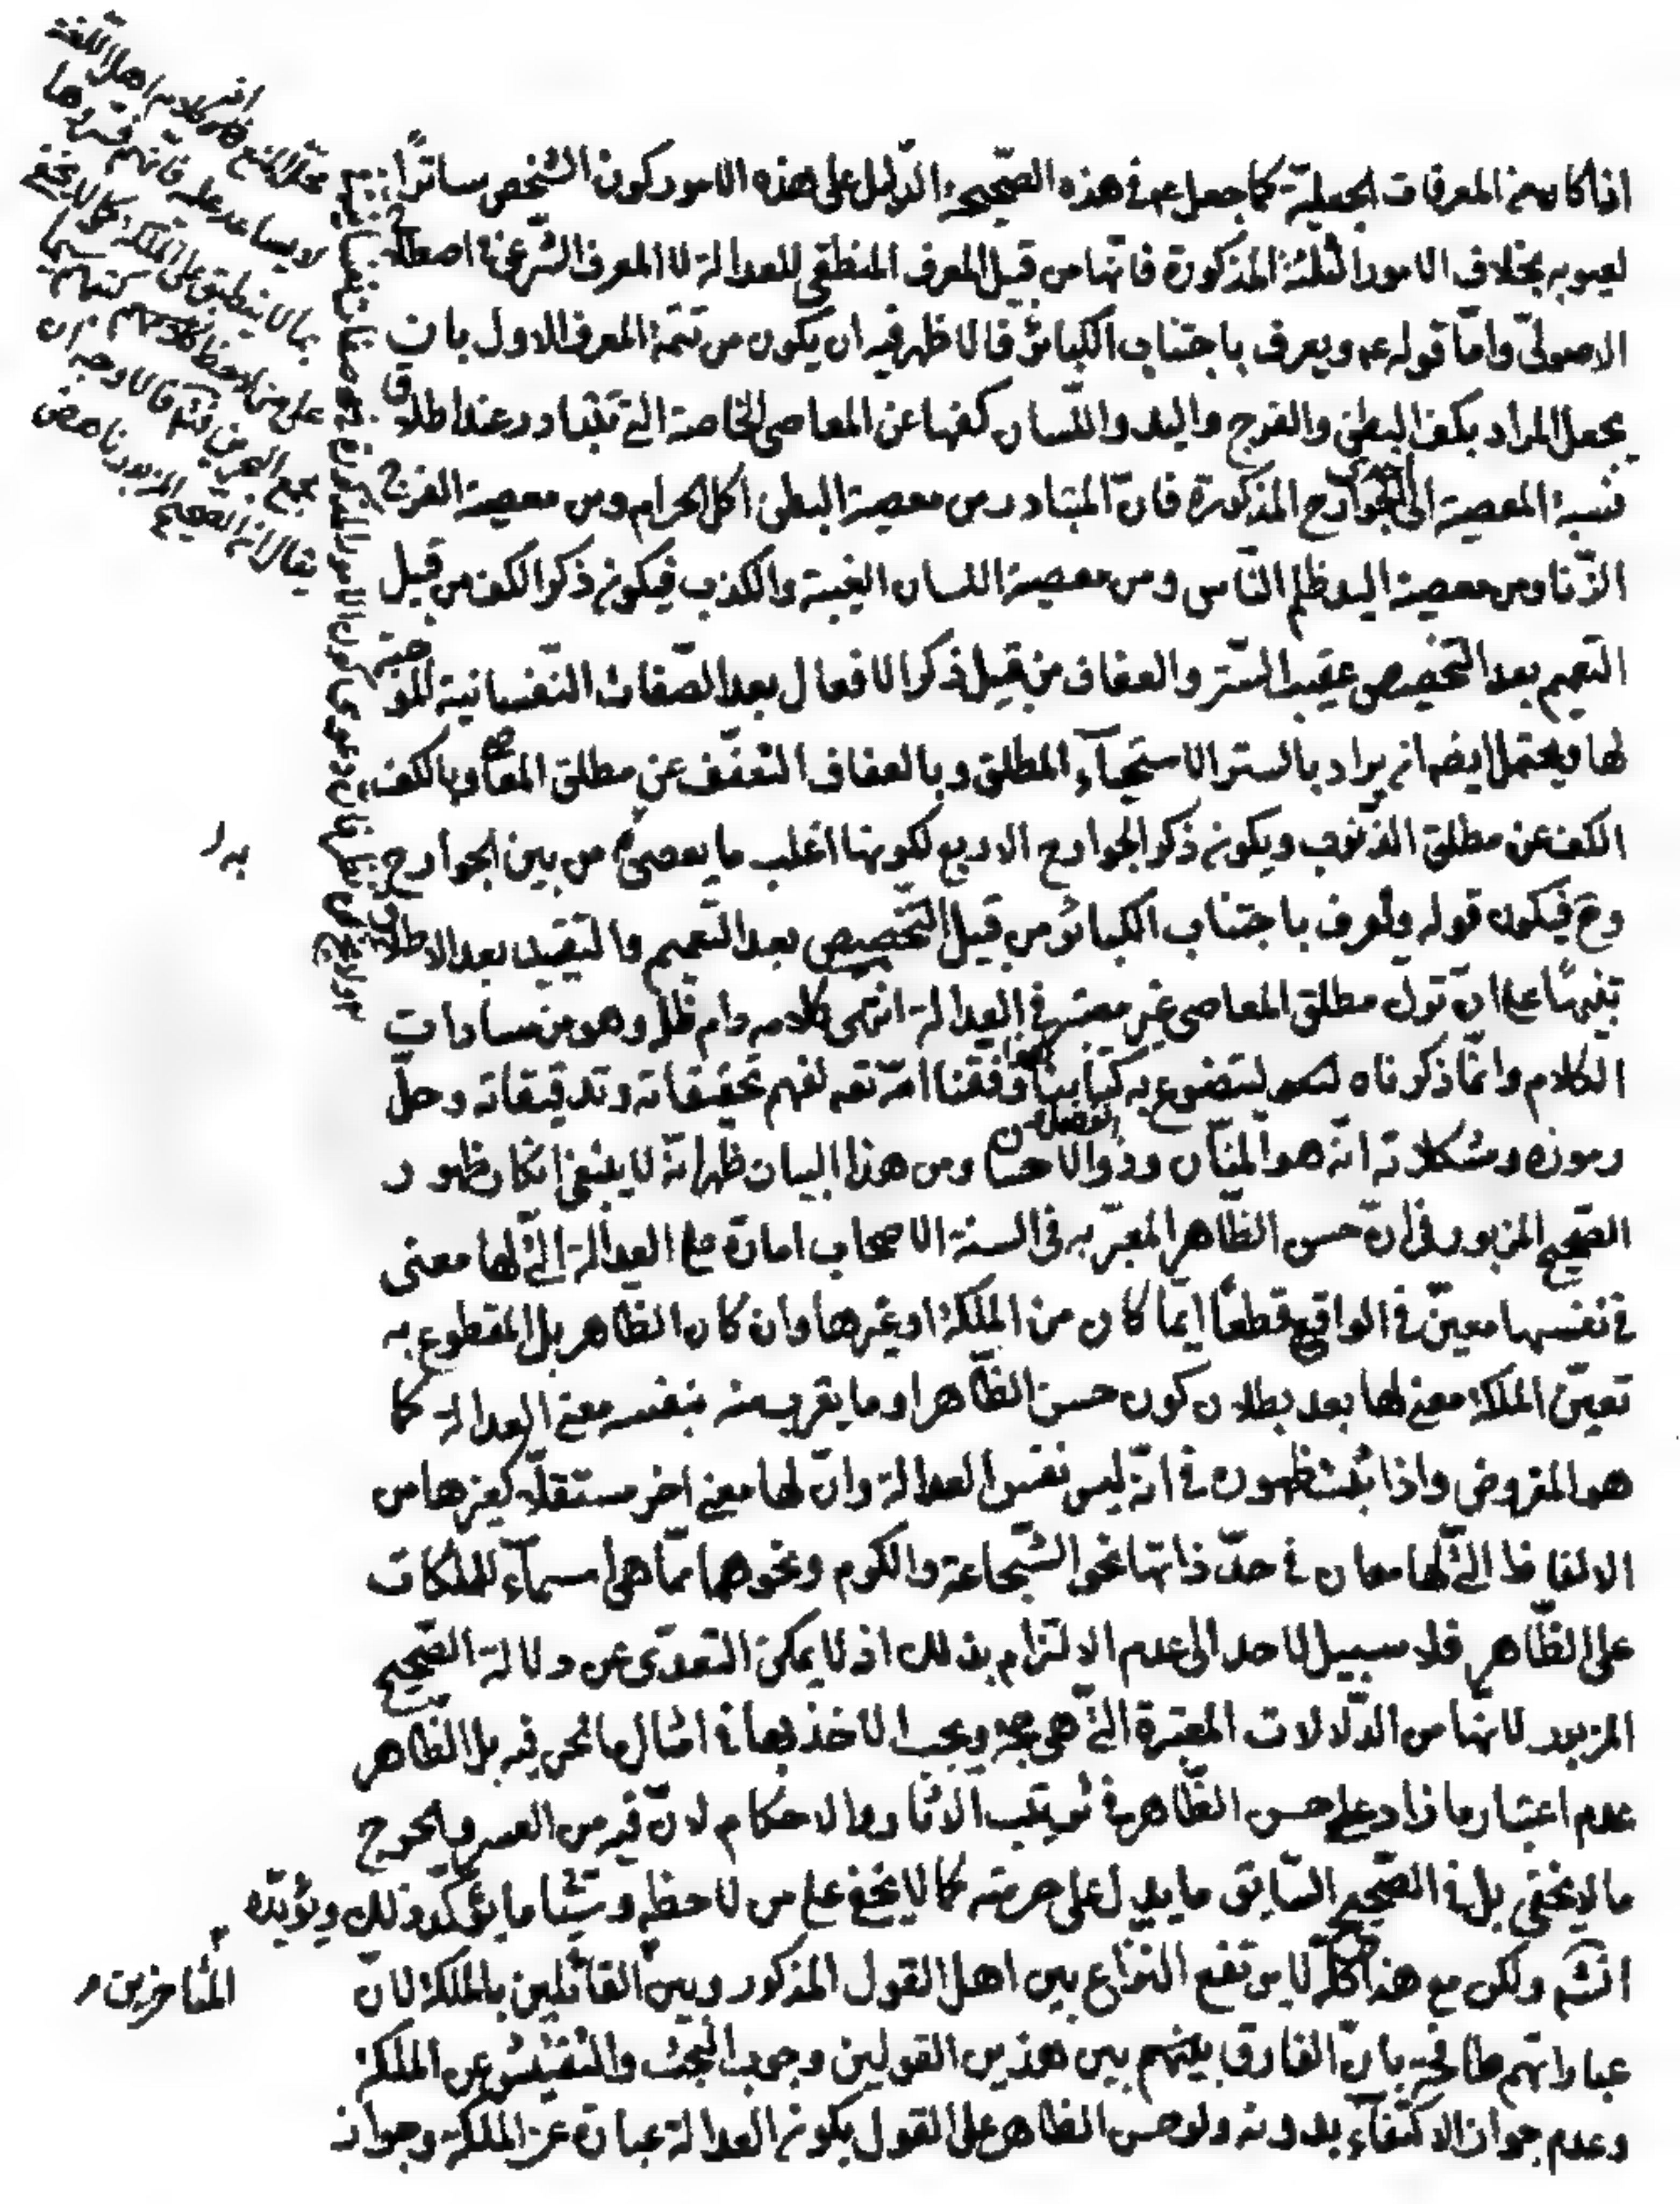 اذا كان من المعرفات الجعليّة كما جعل عه في هذه الصّحيحة الدّليل على هذه الامور كون الشّخص ساترًا
لعيوبه بخلاف الامور الثلثة المذكورة فانّها من قبيل المعرف المنطقى للعدالة لا المعرف الشّرعى فى اصطلاح
الاصولىّ وامّا قوله عه ويعرف باجتناب الكبائر فالاظهر فيه ان يكون من تتمّة المعرف الاول بان
يجعل المراد بكف البطن والفرج واليد واللّسان كفها عن المعاصى الخاصة الّتى تتبادر عند اطلاق
نسبة المعصية الى الجوارح المذكورة فانّ المتبادر من معصية البطن اكل الحرام ومن معصية الفرج
الزّنا ومن معصية اليد ظلم النّاس ومن معصية اللسان الغيبة والكذب فيكون ذكر الكف من قبيل
التعميم بعد التّخصيص عقيب السّتر والعفاف من قبيل ذكر الافعال بعد الصّفات النّفسانية الموجبة
لها ويحتمل ايضه ان يراد بالستر الاستحيآء المطلق وبالعفاف التعفّف عن مطلق المعاصى وبالكف
الكف عن مطلق الذّنوب ويكون ذكر الجوارح الاربع لكونها اغلب ما يعصى من بين الجوارح
وح فيكون قوله ويعرف باجتناب الكبائر من قبيل التّخصيص بعد التّعميم والتّقييد بعد الاطلاق
تنبيهًا على انّ ترك مطلق المعاصى غير معتبر فى العدالة انتهى كلامه دام ظلّه وهو من سادات
الكلام وانّما ذكرناه ليتضوع به كتابنا وفقنا اللّه تعه لفهم تحقيقاته وتدقيقاته وحلّ
رموزه ومشكلاته انّه هو المنّان وذو الفضل والاحسان ومن هذا البيان ظهر انّه لا ينبغى انكار ظهور
الصّحيح المزبور فى انّ حسن الظّاهر المعبّر به فى السنة الاصحاب امارة على العدالة الّتى لها معنى
فى نفسها معيّن فى الواقع قطعًا ايّما كان من الملكة او غيرها وان كان الظّاهر بل المقطوع به
تعيّن الملكة معنى لها بعد بطلان كون حسن الظّاهر او ما يقرب منه بنفسه معنى العدالة كما
هو المفروض واذا ثبت ظهوره فى انّه ليس نفس العدالة وانّ لها معنى اخر مستقلّا كغيرها من
الالفاظ الّتى لها معان فى حدّ ذاتها نحو الشّجاعة والكرم ونحوهما ممّا هى اسمآء للملكات
على الظّاهر فلا سبيل لاحد الى عدم الالتزام بذلك اذ لا يمكن التعدّى عن دلالة الصّحيح
المزبور لانّها من الدّلالات المعتبرة الّتى هى حجّة ويجب الاخذ بها فى امثال ما نحن فيه بل الظاهر
عدم اعتبار ما زاد على حسن الظّاهر فى ترتيب الاثار والاحكام لانّ فيه من العسر والحرج
ما لا يخفى بل فى الصّحيح السّابق ما يدل على حرمته كما لا يخفى على من لاحظه وسيأتى ما يؤكّد ذلك ويؤيّده
انشه ولكن مع هذا كلّه لا يرتفع النّزاع بين اهل القول المذكور وبين القائلين بالملكة لانّ
المتاخرين
عباراتهم طافحة بانّ الفارق بينهم بين هذين القولين وجوب البحث والتّفتيش عن الملكة
وعدم جواز الاكتفآء بدونه ولو حسن الظاهر على القول بكون العدالة عبارة عن الملكة وجواز
محلّ المنع كلام اهل اللّغة
لا يساعد عليه فانّهم فسّروها
بما لا ينطبق على الملكة كما لا يخفى
على من لاحظ كلامهم كتبهم سيما
مجمع البحرين فالاوجه ان
يقال انّ الصحيح المزبور ناهض